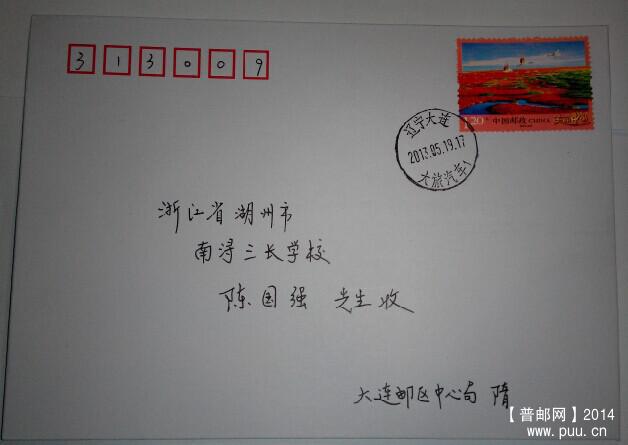 313009
1.20元 中国邮政 CHINA
辽宁大连
2013.05.19.17
大旅汽车1
浙江省湖州市
南浔三长学校
陈国强 先生收
大连邮区中心局 隋
【普邮网】2014
www.puu.cn